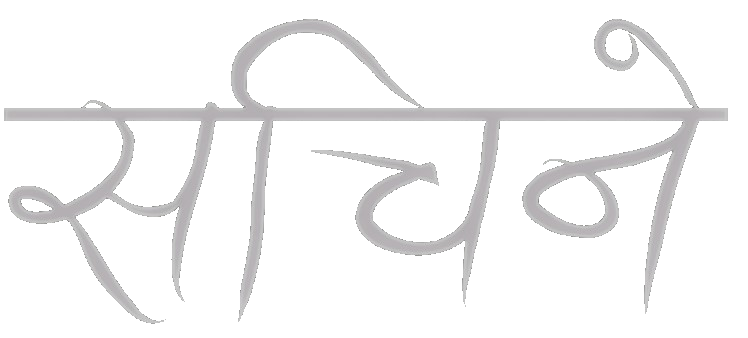 सचिने